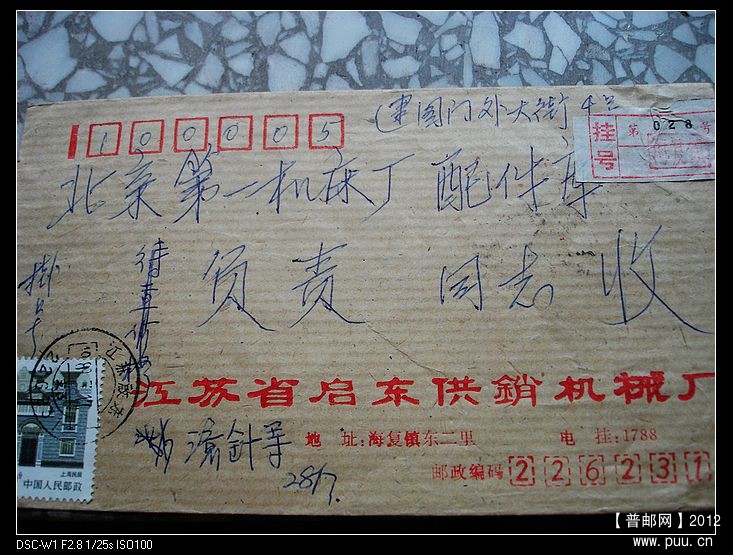 建国门外大街 4号
100005
挂号 第 028 号
北京第一机床厂 配件库
负责 同志 收
江苏省启东供銷机械厂
地 址:海复镇东二里 电 挂:1788
邮政编码 226231
上海民居
中国人民邮政
【普邮网】2012
www.puu.cn
DSC-W1 F2.8 1/25s ISO100